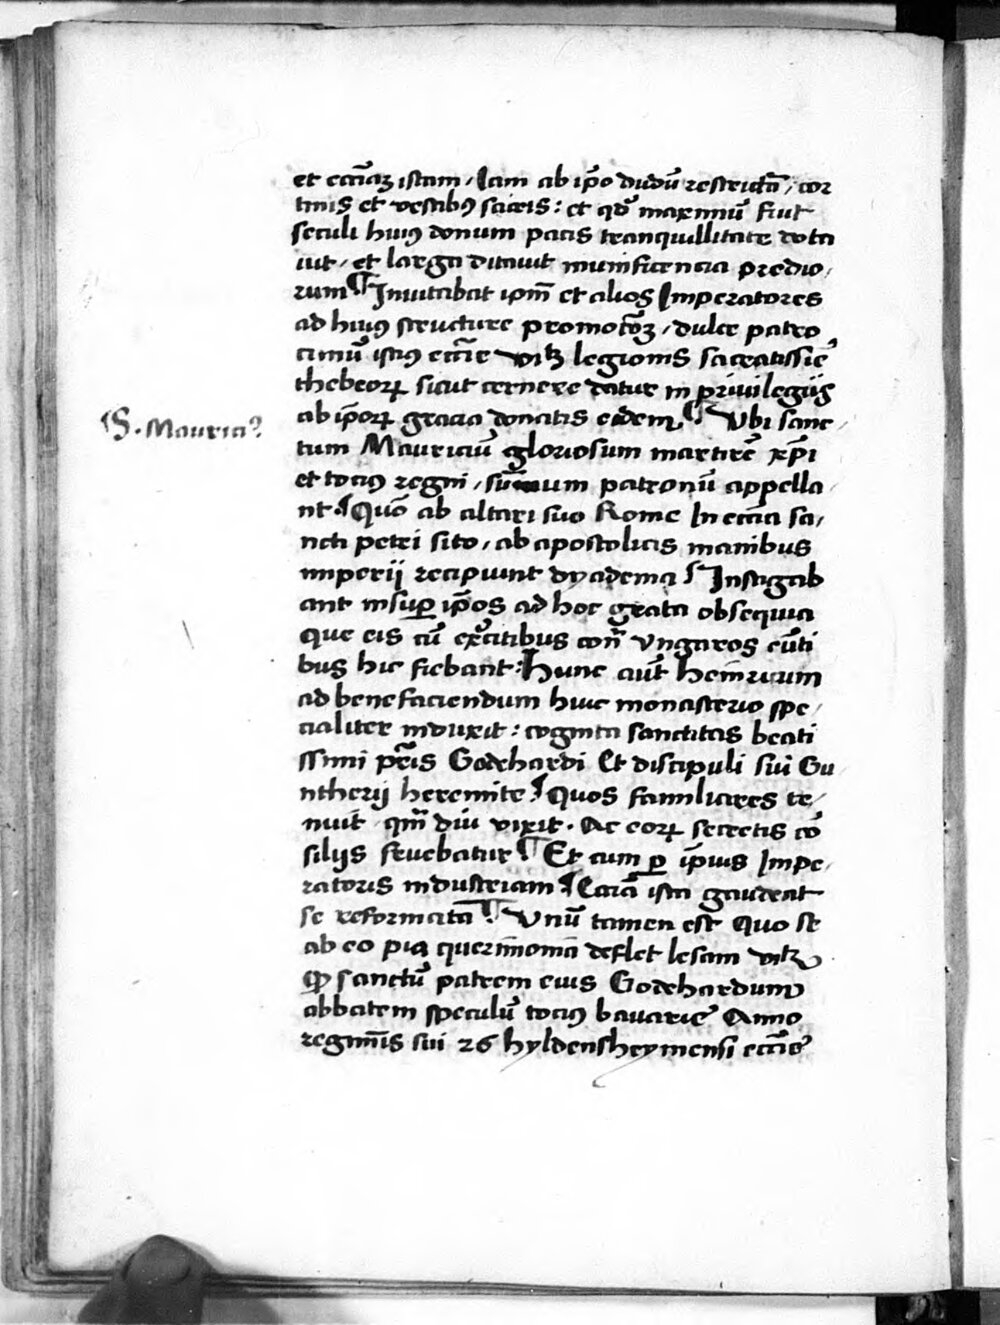 et eccĩaꝫ istam / Iam ab ip̃o dudũ restrictã / cor
tinis et vestibꝰ sacris : et qđ maximũ fuit
seculi huiꝰ donum pacis tranquillitate dota
uit / et larga ditauit munificencia predio /
rum ¶ Inuitabat ip̃m et alios Imperatores
ad huiꝰ structure promotõꝫ / dulce patro
ciniũ istiꝰ eccĩe vitꝫ legionis sacratissiẽ
thebeoꝝ sicut cernere datur in priuilegijs
ab ip̃oꝝ gracia donatis eidem ¶ Vbi sanc /
¶ S. Mauriciꝰ
tum Mauriciũ gloriosum martirẽ xp̃i
et tociꝰ regni / sũmum patronũ appella /
nt ¶ Quõ ab altari suo Rome In eccĩa sa /
ncti petri sito / ab apostolicis manibus
imperij recipiunt dyadema ¶ Instigab
ant insuꝑ ip̃os ad hoc grata obsequia
que eis cũ exĩcitibus cont̃ vngaros eũti
bus hic fiebant : Hunc aũt heinricum
ad benefaciendum huic monasterio spe /
cialiter induxit : cognita sanctitas beati
ssimi pr̃is Godehardi Et discipuli sui Gu
ntherij heremite ¶ Quos familiares te /
nuit qm̃ diu vixit . Ac eoꝝ secretis cõ
silijs fruebatur ¶ Et cum ꝑ ip̃ius Impe /
ratoris industriam ¶ Carã ista gaudeat
se reformatã ¶ Vnũ tamen est quo se
ab eo pia querimoniã deflet lesam vitꝫ
ꝙ sanctũ patrem eius Godehardum
abbatem speculũ tociꝰ bauarie Anno
regiminis sui 26 hyldensheymensi eccĩe